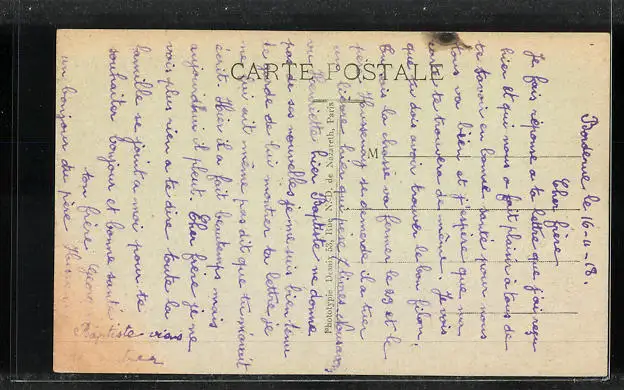 CARTE POSTALE
Phototypie Daniel 53, Rue N.D. de Nazareth, Paris
M
le 16-11-18.
Cher frère
Je fais réponse à ta lettre que j'ai reçu
hier et qui nous a fait plaisir à tous de
te savoir en bonne santé pour nous
tous va bien et j'espère que ma
carte te trouvera de même. Je vois
que tu dois avoir trouver le bon filon.
la chasse va fermer le 29 et le
père se demerde il a tuer
un lièvre hier
vu Henriette hier Baptiste ne donne
pas de ses nouvelles je me suis bien tenu
de garde de lui montrer ta lettre je
ne lui ait même pas dit que tu m'avait
écrit. Hier il a fait beau temps mais
aujourd'hui il pleut. Cher frère je ne
vois plus rien a te dire toute la
famille se joint a moi pour te
souhaiter bonjour et bonne santé
ton frère
un bonjour du père
Baptiste